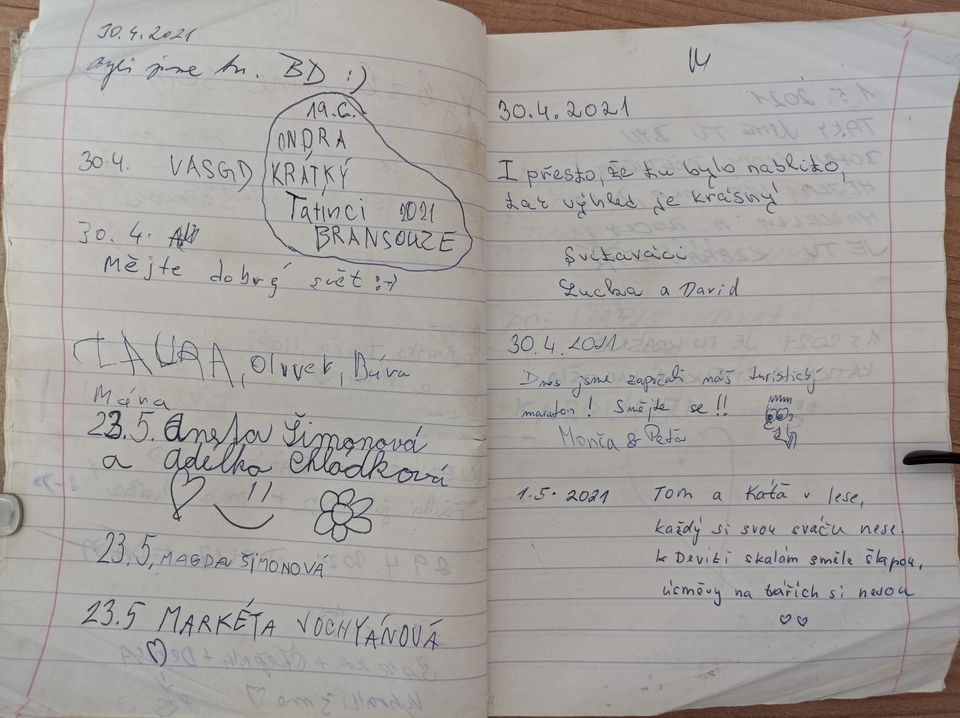 30.4.2021
Byli jsme tu. BD :)
19.6.
ONDRA
KRÁTKÝ
Tatínci 2021
BRANSOUZE
30.4. VASGD
30.4.
Mějte dobrý svět :-)
LAURA, Oliver, Bára
Mára
23.5. Aneta Šimonová
a Adélka Chládková
23,5, MAGDA ŠIMONOVÁ
23.5 MARKÉTA VOCHYÁNOVÁ
30.4.2021
I přesto, že tu bylo nablito,
tak výhled je krásný!
Svitaváci
Lucka a David
30.4.2021
Dnes jsme započali náš turistický
maraton! Smějte se!!
Monča & Peťa
1.5.2021 Tom a Káťa v lese,
každý si svou sváču nese.
k Devíti skalám směle šlapou,
úsměvy na tvářích si nesou